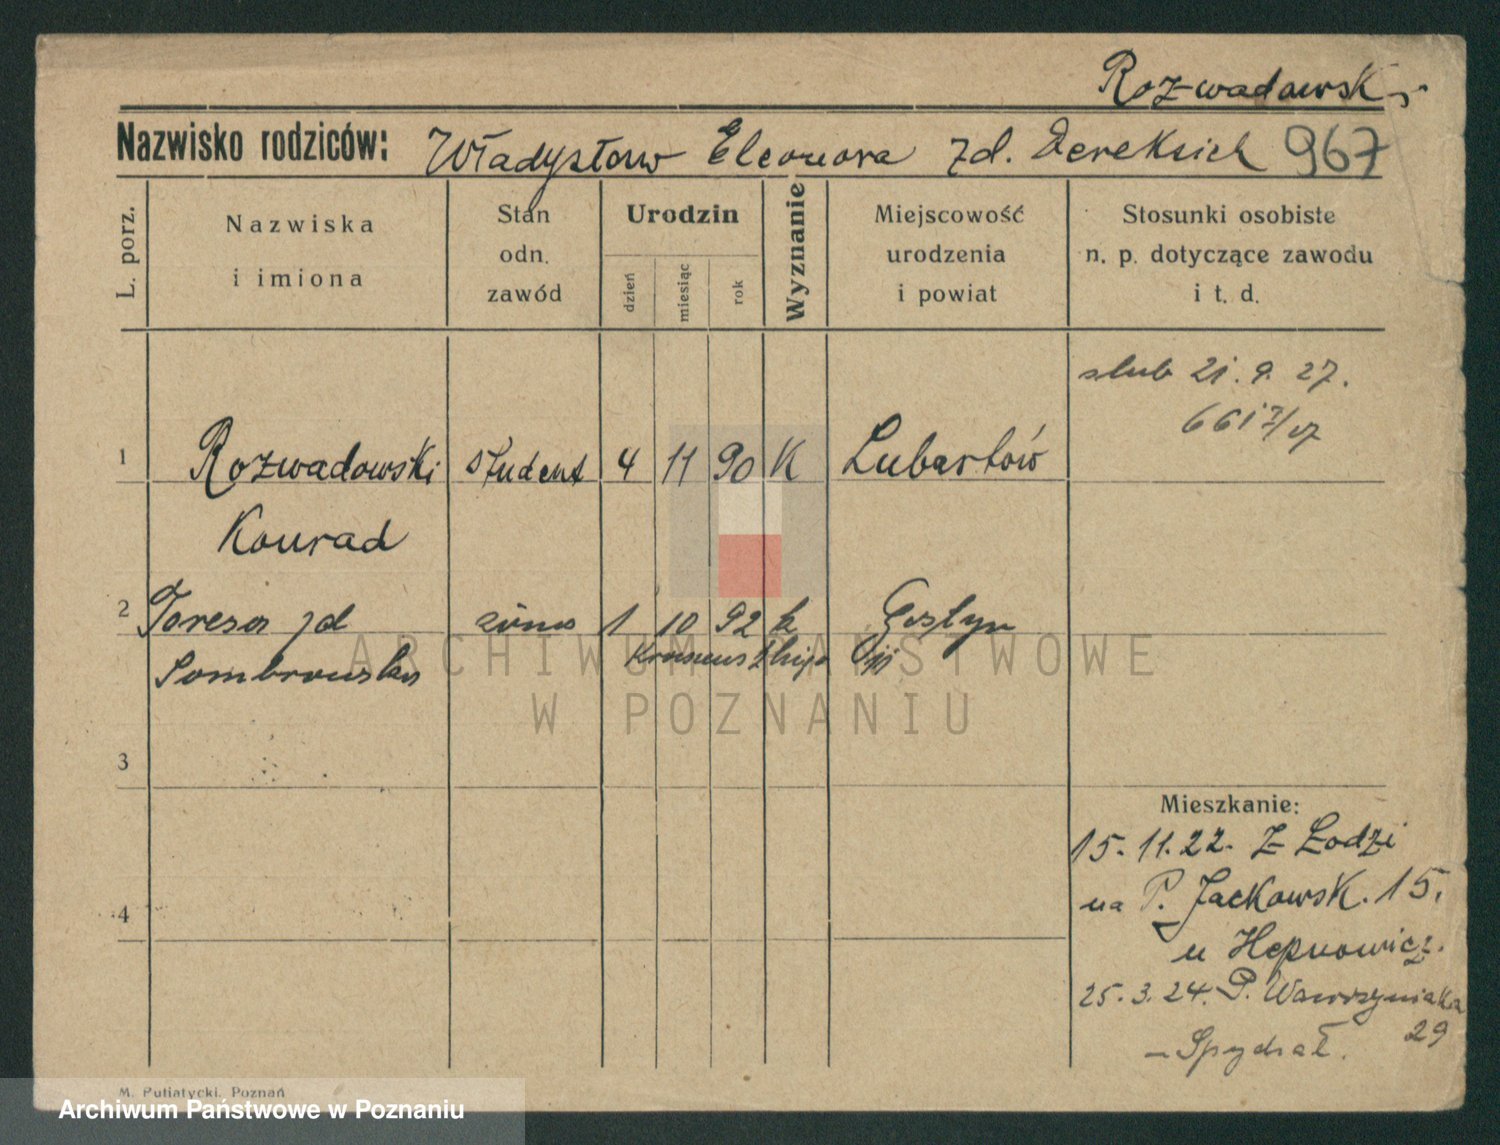 Rozwadowski
Nazwisko rodziców: Władysław Eleonora zd. Dereksich 967
L. porz.
Nazwiska i imiona
Stan odn. zawód
Urodzin
dzień miesiąc rok
Wyznanie
Miejscowość urodzenia i powiat
Stosunki osobiste n. p. dotyczące zawodu i t. d.
slub 21. 9. 27.
1 Rozwadowski student 4 11 90 K Lubartów
Konrad
2 Teresa zd żona 1 10 92 k Gostyn
3
Mieszkanie:
15. 11. 22. Z Łodzi
na P. Jackowsk. 15.
u Hepnowicz.
4
25. 3. 24. P. Wawrzyniaka
29
M. Putiatycki, Poznań
ARCHIWUM PAŃSTWOWE
W POZNANIU
Archiwum Państwowe w Poznaniu